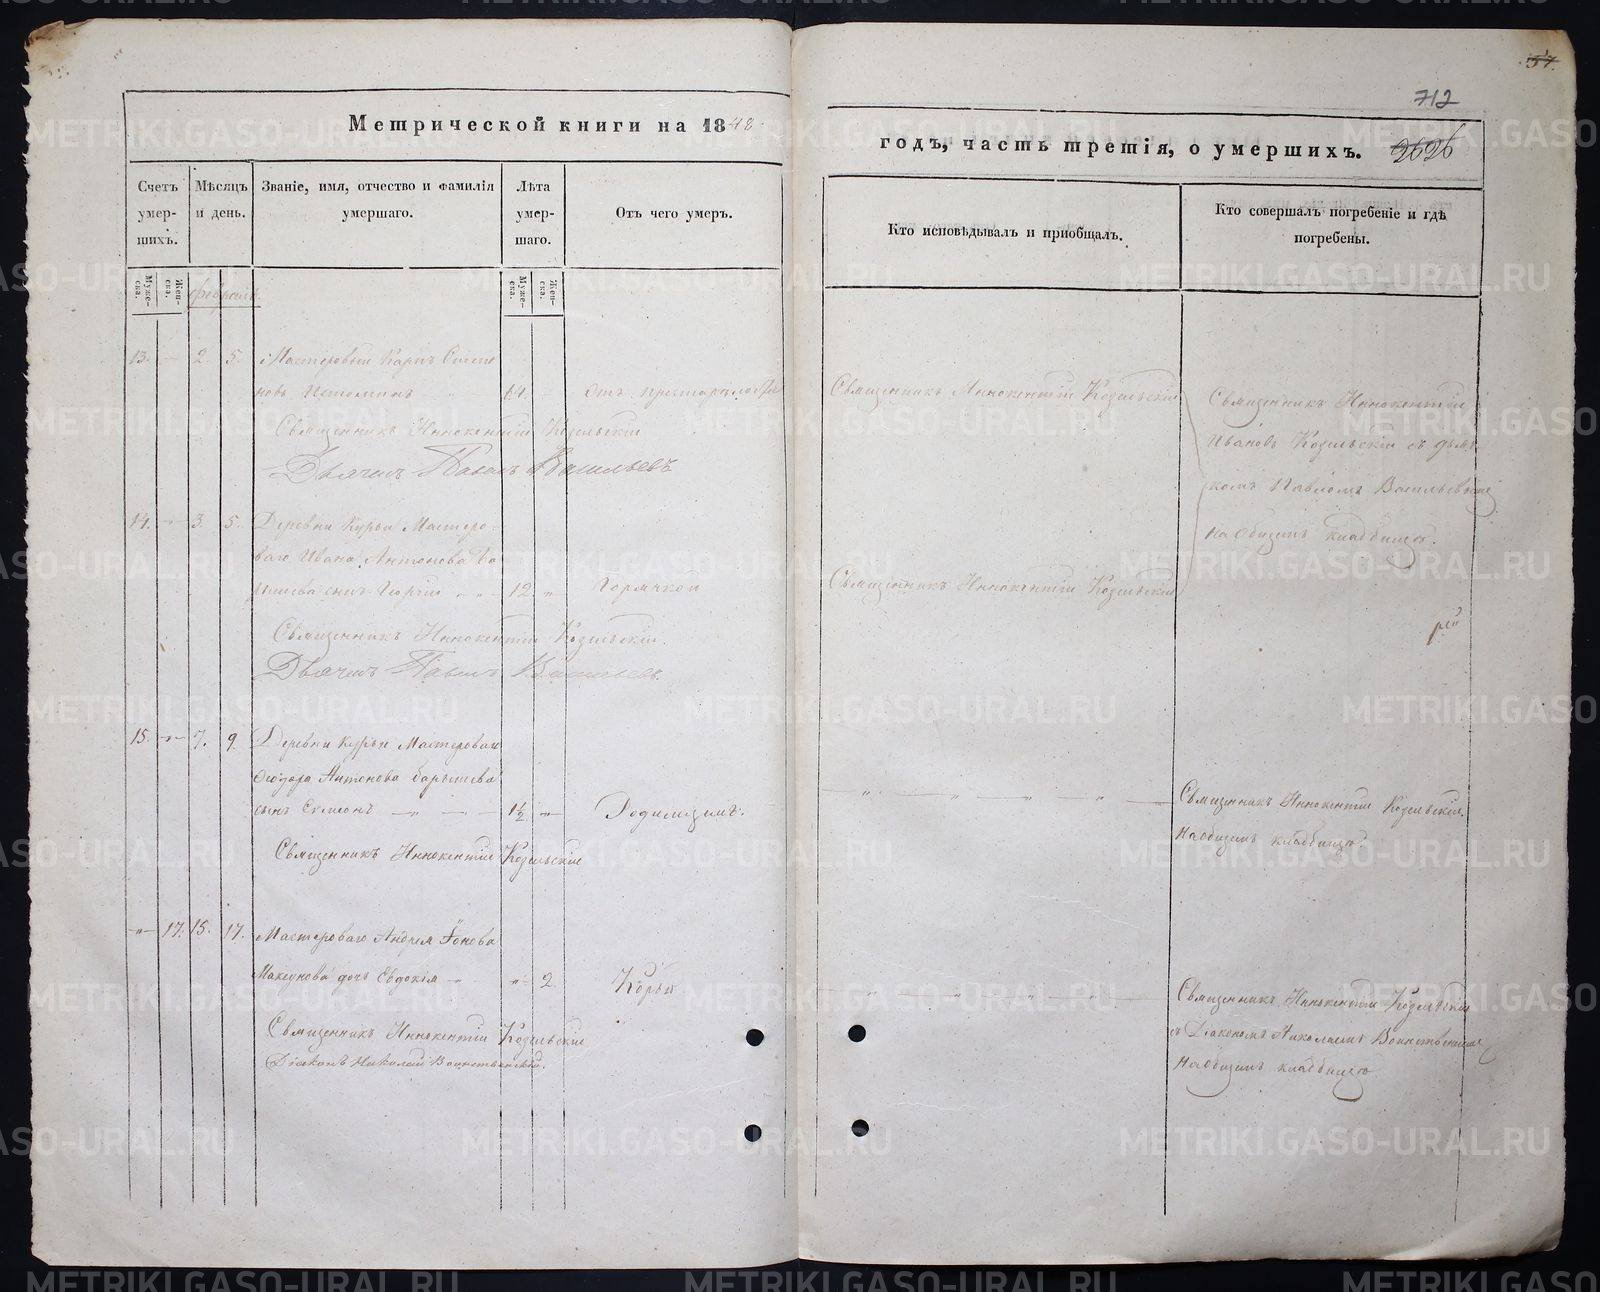 57.
712
Метрической книги на 1848.
годъ, часть третія, о умершихъ. 2626
Счетъ умер-шихъ.
Мѣсяцъ и день.
Званіе, имя, отчество и фамилія умершаго.
Лѣта умер-шаго.
Отъ чего умеръ.
Кто исповѣдывалъ и приобщалъ.
Кто совершалъ погребеніе и гдѣ погребены.
Муже-ска. Жен-ска.
Муже-ска. Жен-ска.
Февраль
13. 2. 5. Мастеровый Карпъ
новъ Истоминъ 64. Отъ престарѣлости
Священникъ Иннокентій Козельскій
Священникъ Иннокентій Козельскій
Дьячекъ Павелъ Васильевъ
Священникъ Иннокентій
Ивановъ Козельскій съ дьяч-
комъ Павломъ Васильевымъ
на общемъ кладбищѣ.
14. 3. 5. Деревни Курьи Мастеро-
ваго Ивана Антонова Ба
рышева сынъ Георгій 12. Горячкой
Священникъ Иннокентій Козельскій
Священникъ Иннокентій Козельскій.
Дьячекъ Павелъ Васильевъ.
15. 7. 9. Деревни Курьи Мастероваго
Ѳеодора Антонова Барышева
сынъ Симеонъ 1½ Родимцемъ.
Священникъ Иннокентій Козельскій
Священникъ Иннокентій Козельскій
на общемъ кладбищѣ.
17. 15. 17. Мастероваго Андрея Іонова
дочь Евдокія 2 Корью
Священникъ Иннокентій Козельскій
Діаконъ Николай Воинственскій.
Священникъ Иннокентій Козельскій
съ Діакономъ Николаемъ Воинственскимъ
на общемъ кладбищѣ
METRIKI.GASO-URAL.RU